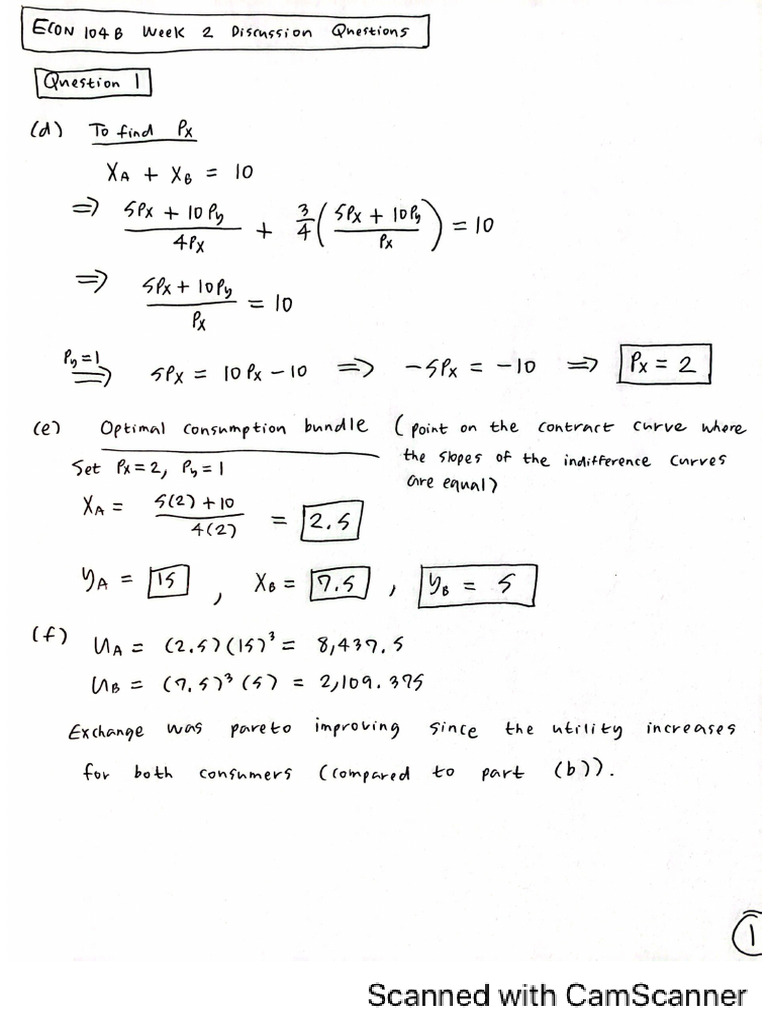 ECON 104B Week 2 Discussion Questions
Question 1
(d) To find Px
XA + XB = 10
⇒ (5Px + 10Py)/(4Px) + 3/4 ((5Px + 10Py)/Px) = 10
⇒ (5Px + 10Py)/Px = 10
Py=1 ⇒ 5Px = 10Px - 10 ⇒ -5Px = -10 ⇒ Px = 2
(e) Optimal consumption bundle (point on the contract curve where
the slopes of the indifference curves
are equal)
Set Px=2, Py=1
XA = (5(2)+10)/(4(2)) = 2.5
yA = 15, XB = 7.5, yB = 5
(f) UA = (2.5)(15)³ = 8,437.5
UB = (7.5)³(5) = 2,109.375
Exchange was pareto improving since the utility increases
for both consumers (compared to part (b)).
1
Scanned with CamScanner